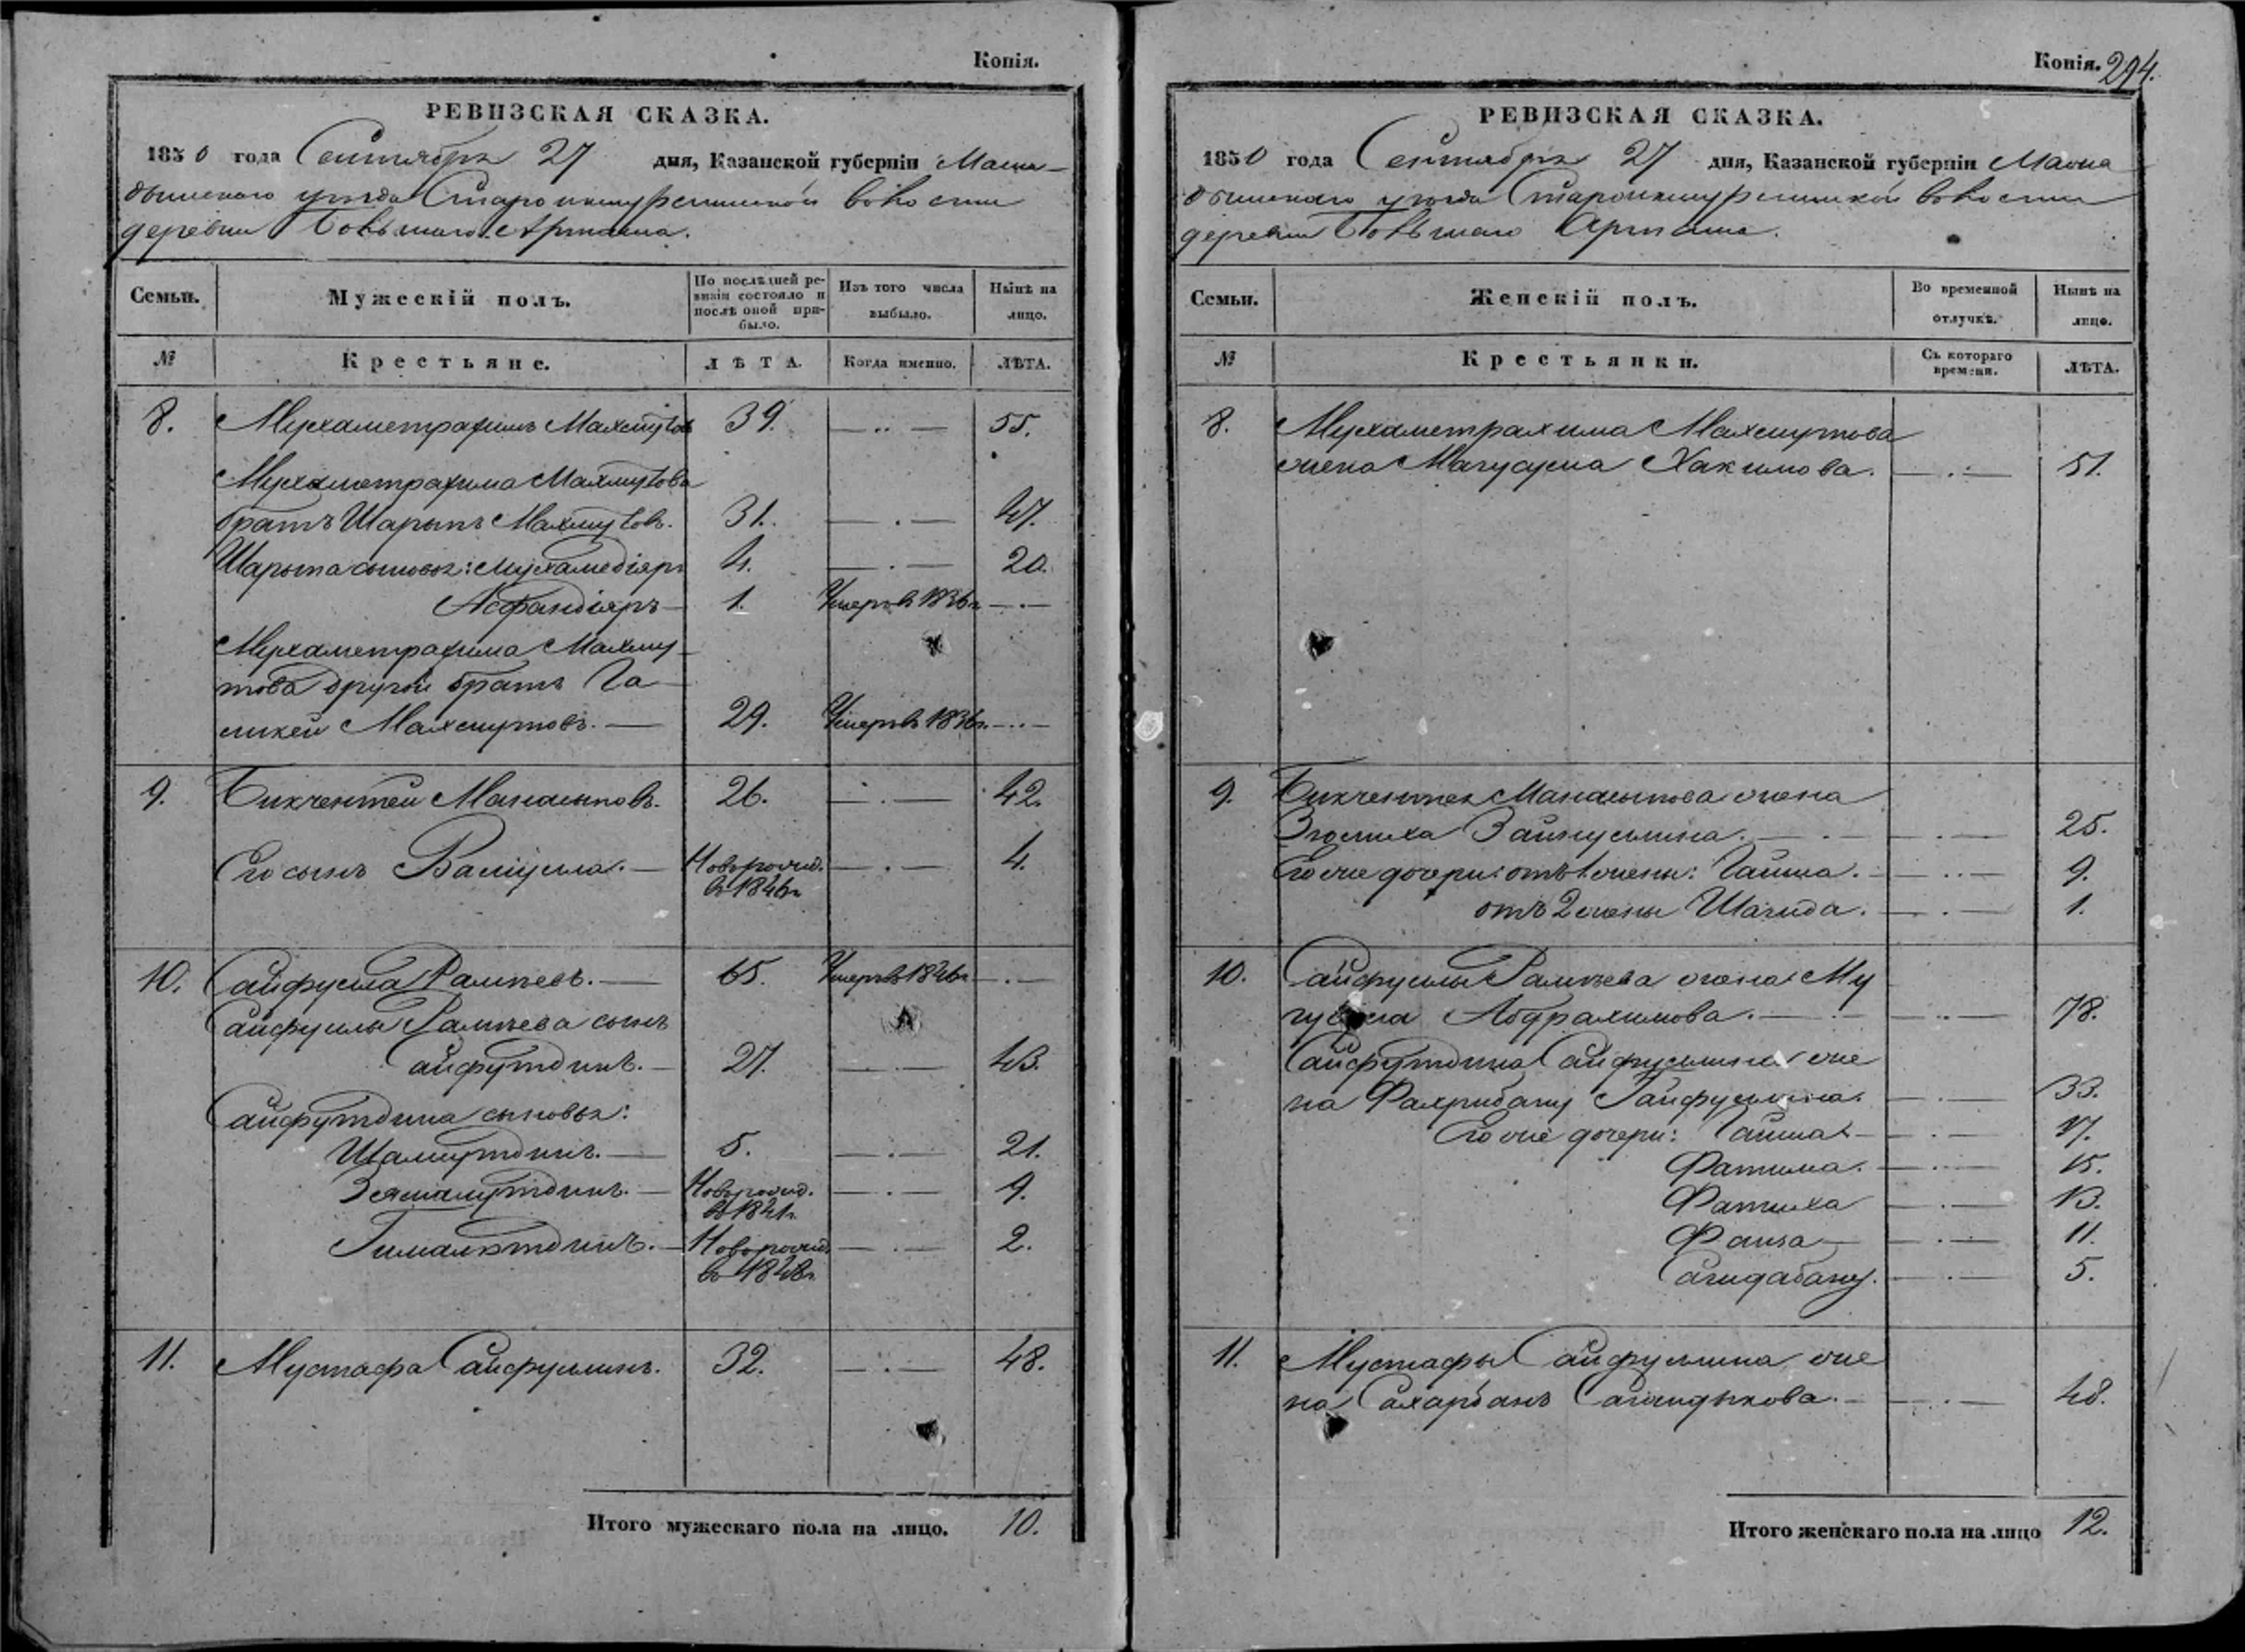 Копія.
РЕВИЗСКАЯ СКАЗКА.
1850 года Сентября 27 дня, Казанской губерніи Мама-
дышскаго уѣзда Староикшурминской волости
деревни Большаго Арташа.
Семьи. Мужескій полъ. По послѣдней ре-визіи состояло и послѣ оной при-было. Изъ того числа выбыло. Нынѣ на лицо.
№ Крестьяне. ЛѢТА. Когда именно. ЛѢТА.
8. Мухаметрахимъ Махмутовъ 39. 55.
Мухаметрахима Махмутова
братъ Шарыпъ Махмутовъ. 31. 47.
Шарыпа сыновья: Мухамедіяръ 4. 20.
Асфандіяръ 1. Умеръ въ 1836г.
Мухаметрахима Махму-
това другой братъ Га-
ликей Махмутовъ. 29. Умеръ въ 1836г.
9. Бикчентей Манасыповъ. 26. 42.
Его сынъ Валіулла. Новорожд. 4.
въ 1846г.
10. Сайфулла Рамѣевъ. 65. Умеръ въ 1846г.
Сайфуллы Рамѣева сынъ
Сайфутдинъ. 27. 43.
Сайфутдина сыновья:
Шамсутдинъ. 5. 21.
Зямалутдинъ. Новорожд. 9.
въ 1841г.
Гималэтдинъ. Новорожд. 2.
въ 1848г.
11. Мустафа Сайфуллинъ. 32. 48.
Итого мужескаго пола на лицо. 10.
Копія. 294.
РЕВИЗСКАЯ СКАЗКА.
1850 года Сентября 27 дня, Казанской губерніи Мама
дышскаго уѣзда Староикшурминской волости
деревни Большаго Арташа.
Семьи. Женскій полъ. Во временной отлучкѣ. Нынѣ на лицо.
№ Крестьянки. Съ котораго времени. ЛѢТА.
8. Мухаметрахима Махмутова
жена Магусума Хакимова. 51.
9. Бикчентея Манасыпова жена
Зюлиха Зайнуллина. 25.
Его же дочери: отъ 1 жены: Гайша. 9.
отъ 2 жены Шагида. 1.
10. Сайфуллы Рамѣева жена Му
Абдрахимова. 78.
Сайфутдина Сайфуллина же
на Фахрибану Гайфуллина. 33.
Его же дочери: Гайша 17.
Фатима. 15.
Фатиха 13.
Фаиза 11.
Сагидабану. 5.
11. Мустафы Сайфуллина же
на Сахарбанъ Сагындыкова. 48.
Итого женскаго пола на лицо 12.